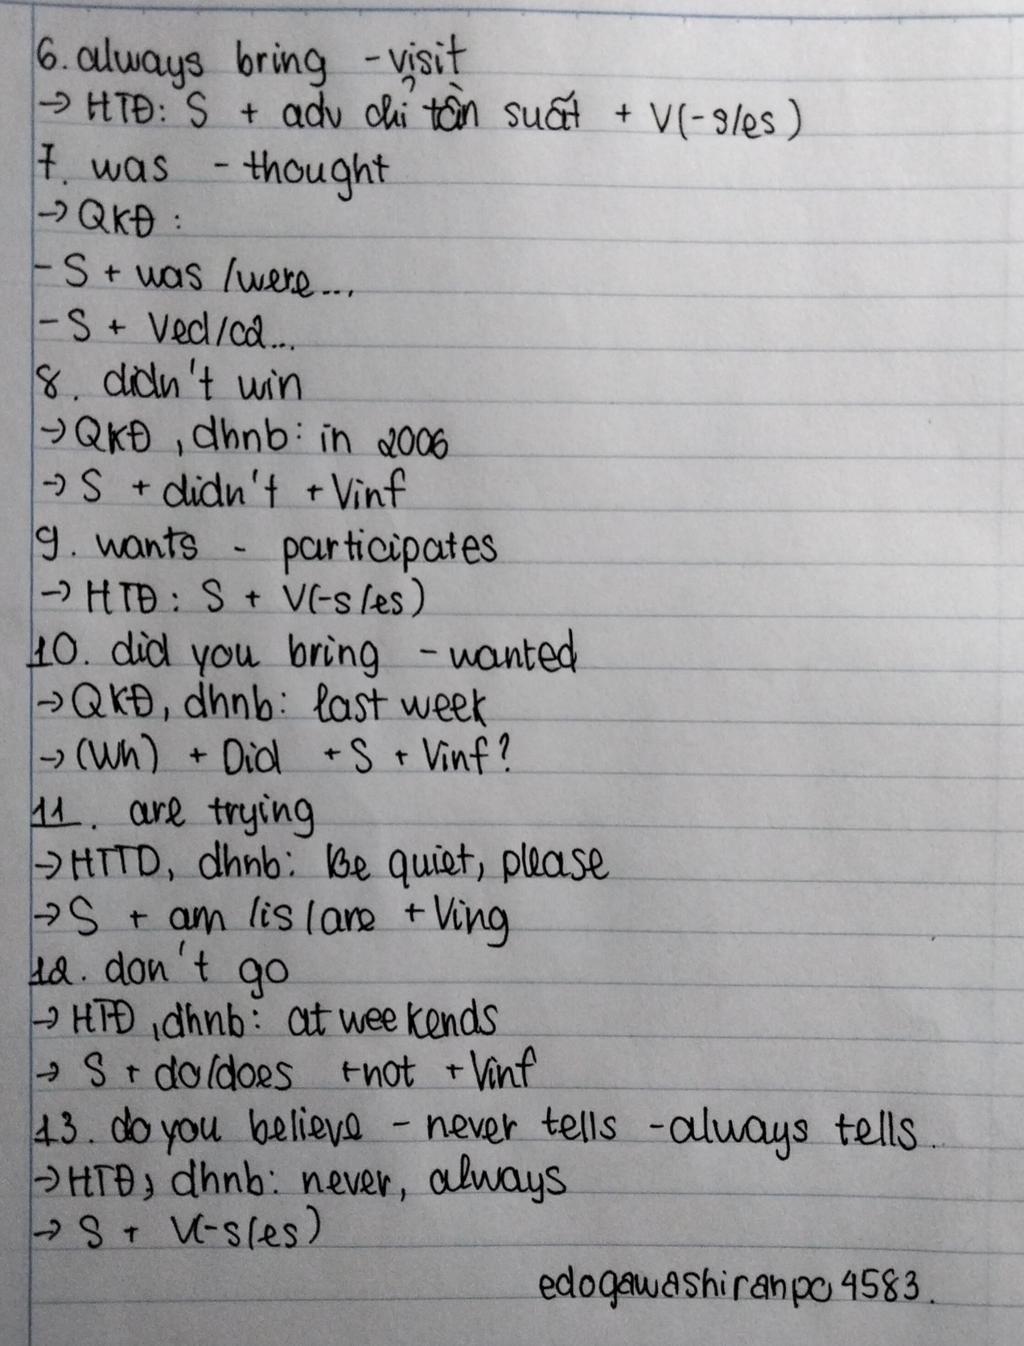 6. always bring - visit
→ HTĐ: S + adv chỉ tần suất + V(-s/es)
7. was - thought
→ QKĐ:
- S + was /were...
- S + Ved/cđ...
8. didn't win
→ QKĐ, dhnb: in 2006
→ S + didn't + Vinf
9. wants - participates
→ HTĐ: S + V(-s/es)
10. did you bring - wanted
→ QKĐ, dhnb: last week
→ (Wh) + Did + S + Vinf?
11. are trying
→ HTTD, dhnb: Be quiet, please
→ S + am /is /are + Ving
12. don't go
→ HTĐ, dhnb: at weekends
→ S + do/does +not + Vinf
13. do you believe - never tells - always tells.
→ HTĐ, dhnb: never, always
→ S + V(-s/es)
edogawashiranpo4583.